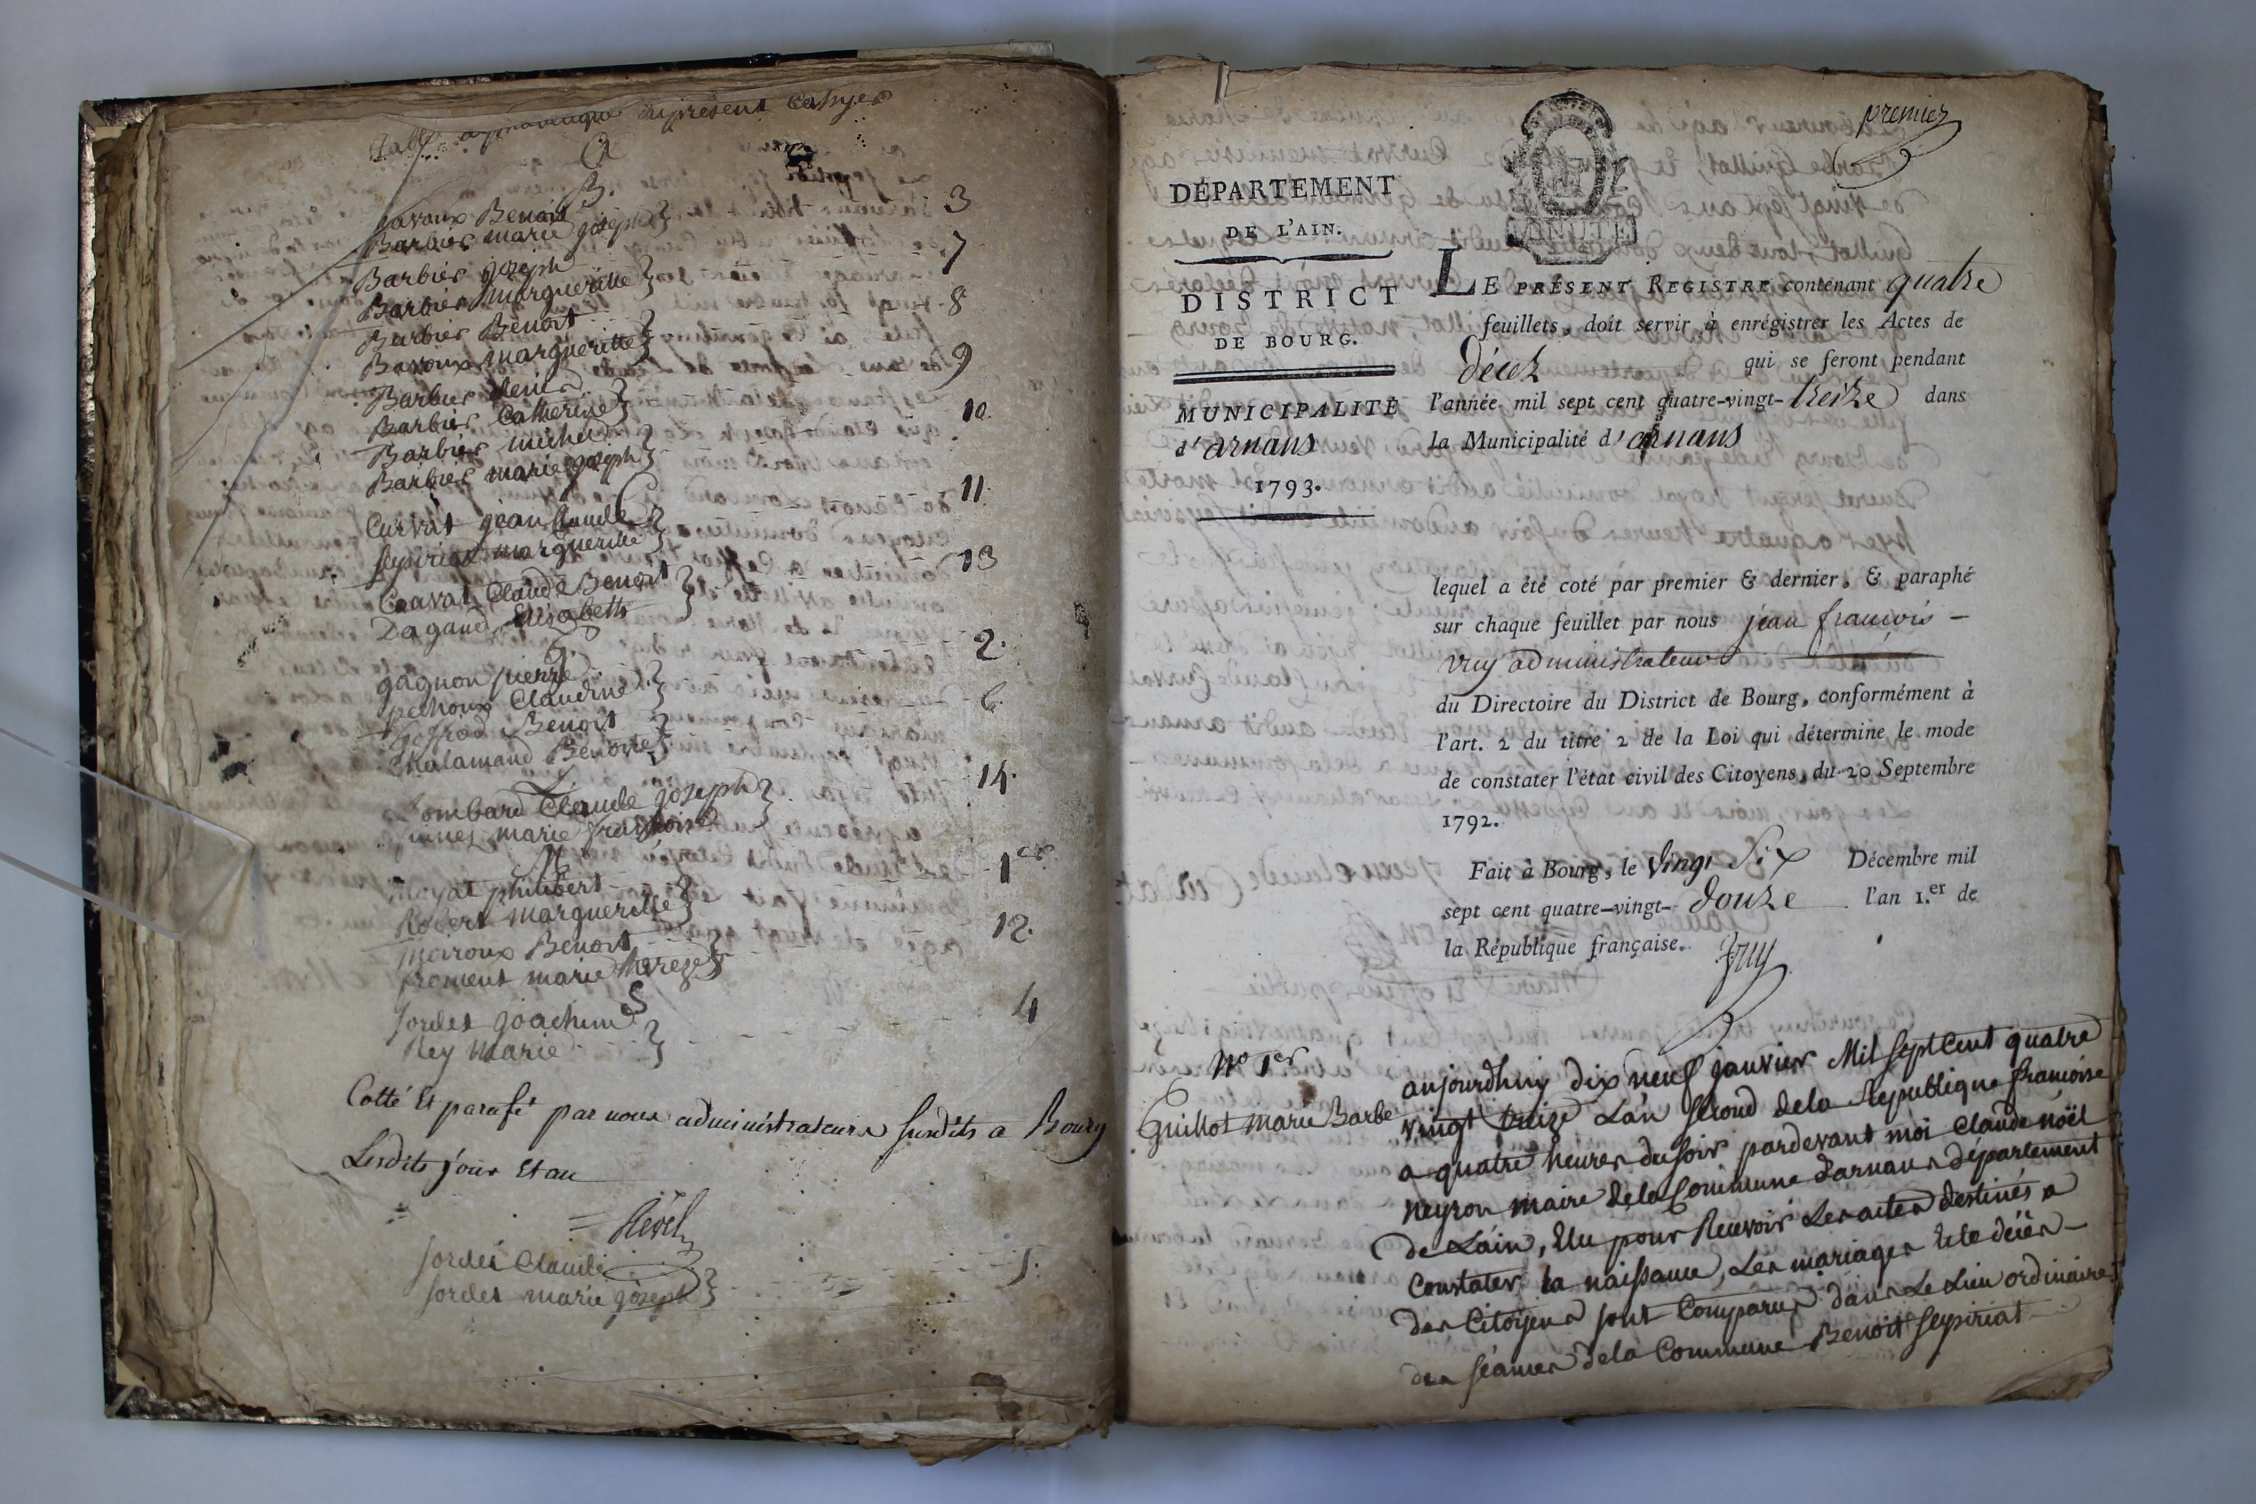 Table du present Cahyer
B.
Barbier marie joseph
3
Barbier joseph
Barbier margueritte
7
Barbier Benoit
margueritte
8
Barbier
Barbier Catherine
9
Barbier michel
Barbier marie joseph
10
C
Curvat jean Claude
Seysiriat margueritte
11
Cravat Claude Benoit
Dagaud Elisabeth
13
G
gagnon pierre
pechoux Claudine
2.
Benoit
Chalamand Benoite
6
L
Lombard Claude joseph
marie françoise
14.
M
moyat philibert
Robert margueritte
1er
moiroux Benoit
froment marie thereze
12.
S
Sordet joachim
Rey marie
4
Cotté Et parafé par nous administrateurs susdits a Bourg
Lesdits jour Et an
Revel
Sordet Claude
Sordet marie joseph
5.
premier
DÉPARTEMENT
DE L'AIN.
DISTRICT
DE BOURG.
MUNICIPALITÉ
d'arnans
1793.
LE PRÉSENT REGISTRE contenant quatre
feuillets, doit servir à enrégistrer les Actes de
décez qui se feront pendant
l'année mil sept cent quatre-vingt-treize dans
la Municipalité d'arnans
lequel a été coté par premier & dernier, & paraphé
sur chaque feuillet par nous jean françois
vuy administrateur
du Directoire du District de Bourg, conformément à
l'art. 2 du titre 2 de la Loi qui détermine le mode
de constater l'état civil des Citoyens, du 20 Septembre
1792.
Fait à Bourg, le vingt six Décembre mil
sept cent quatre-vingt-douze l'an 1.er de
la République française.
Vuy
No 1er
Guillot marie Barbe
aujourdhuy dix neuf janvier Mil sept Cent quatre
vingt treize L'an second de la Republique francoise
a quatre heures du soir pardevant moi Claude noël
neyron maire de la Commune darnans département
de L'ain, Elu pour Recevoir Les actes destinés a
Constater la naissance, Les mariages Et le décès
des Citoyens sont Comparus dans Le Lieu ordinaire
des séances de la Commune Benoit seysiriat